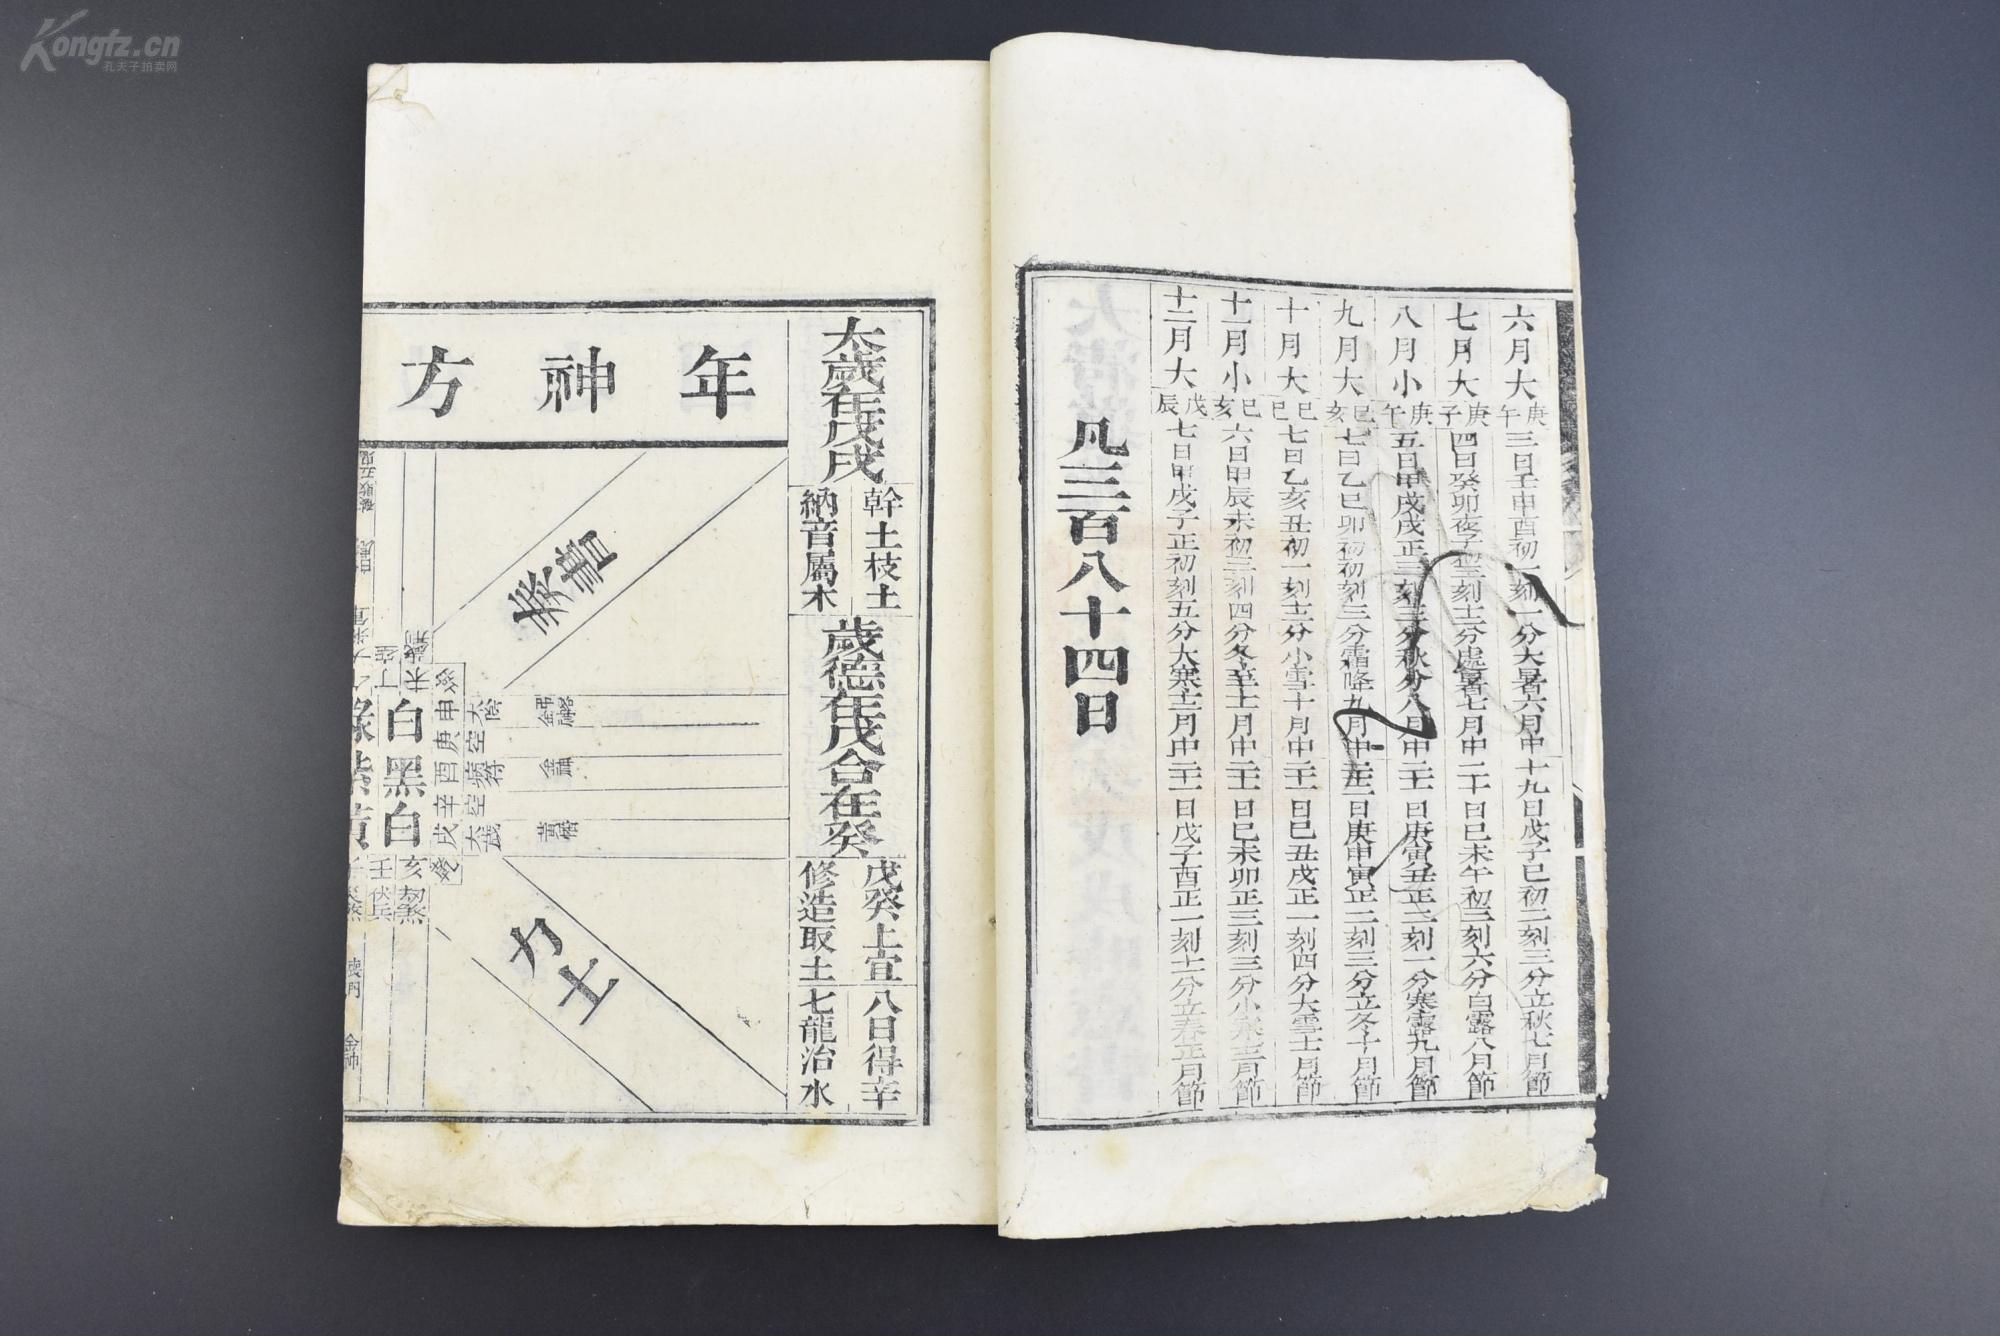 六月大 庚午 三日壬申酉初一刻一分大暑六月中 十九日戊子巳初二刻三分立秋七月節
七月大 庚子 四日癸卯夜子初三刻十二分處暑七月中 二十日己未午初三刻六分白露八月節
八月小 庚午 五日甲戌戌正三刻三分秋分八月中 二十一日庚寅丑正二刻一分寒露九月節
九月大 己亥 七日乙巳卯初初刻三分霜降九月中 二十二日庚申寅正二刻三分立冬十月節
十月大 己巳 七日乙亥丑初一刻十二分小雪十月中 二十一日己丑戌正一刻四分大雪十一月節
十一月小 己亥 六日甲辰未初三刻四分冬至十一月中 二十一日己未卯正三刻三分小寒十二月節
十二月大 戊辰 七日甲戌子正初刻五分大寒十二月中 二十一日戊子酉正一刻十一分立春正月節
凡三百八十四日
太歲在戊戌 幹土枝土 納音屬木
歲德在戊合在癸 戊癸上宜 修造取土
八日得辛 七龍治水
年神方
奏書
力士
太陰
空
病符
空
太歲
申
庚
酉
辛
戌
金神
黃幡
白黑白
未
丁
亥
壬
伏兵
劫煞
喪門
金神
Kongfz.cn
孔夫子拍卖网